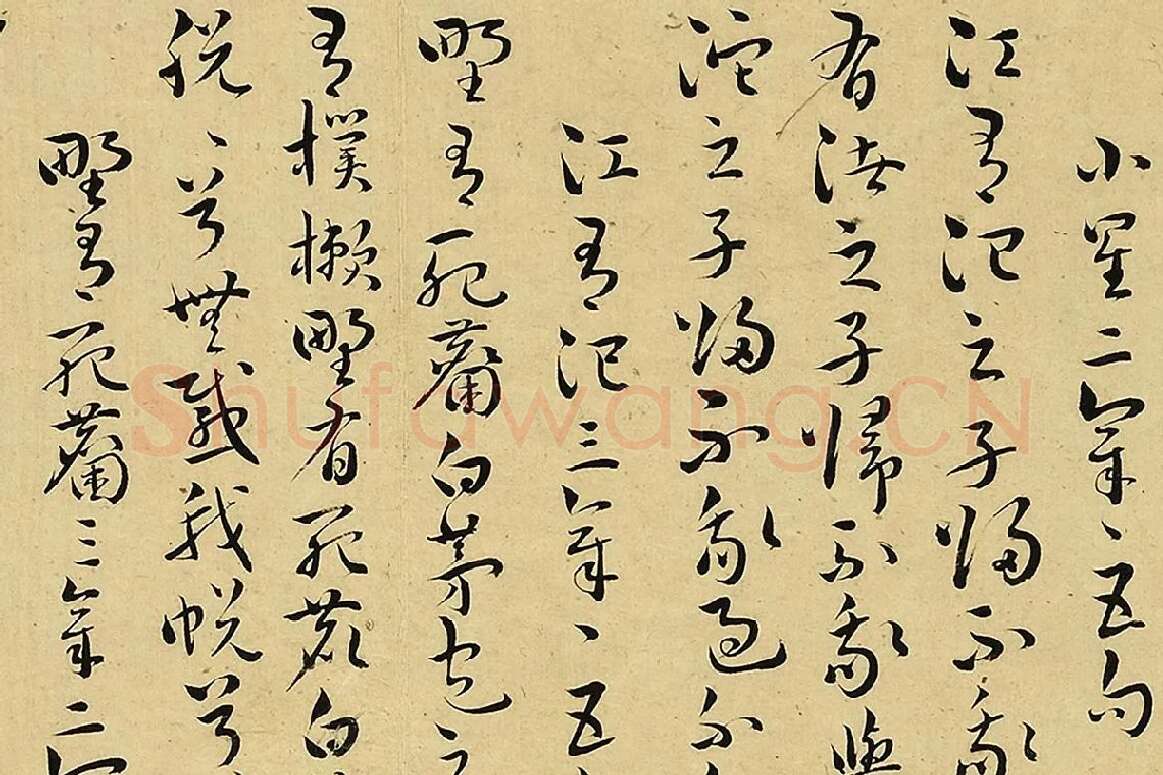 小星二章〻五句
江有汜之子歸不我
有渚之子歸不我與
沱之子歸不我過不我
江有汜三章〻五
野有死麕白茅包之
有樸樕野有死鹿白
脫〻兮無感我帨兮
野有死麕三章二
Shufawang.CN